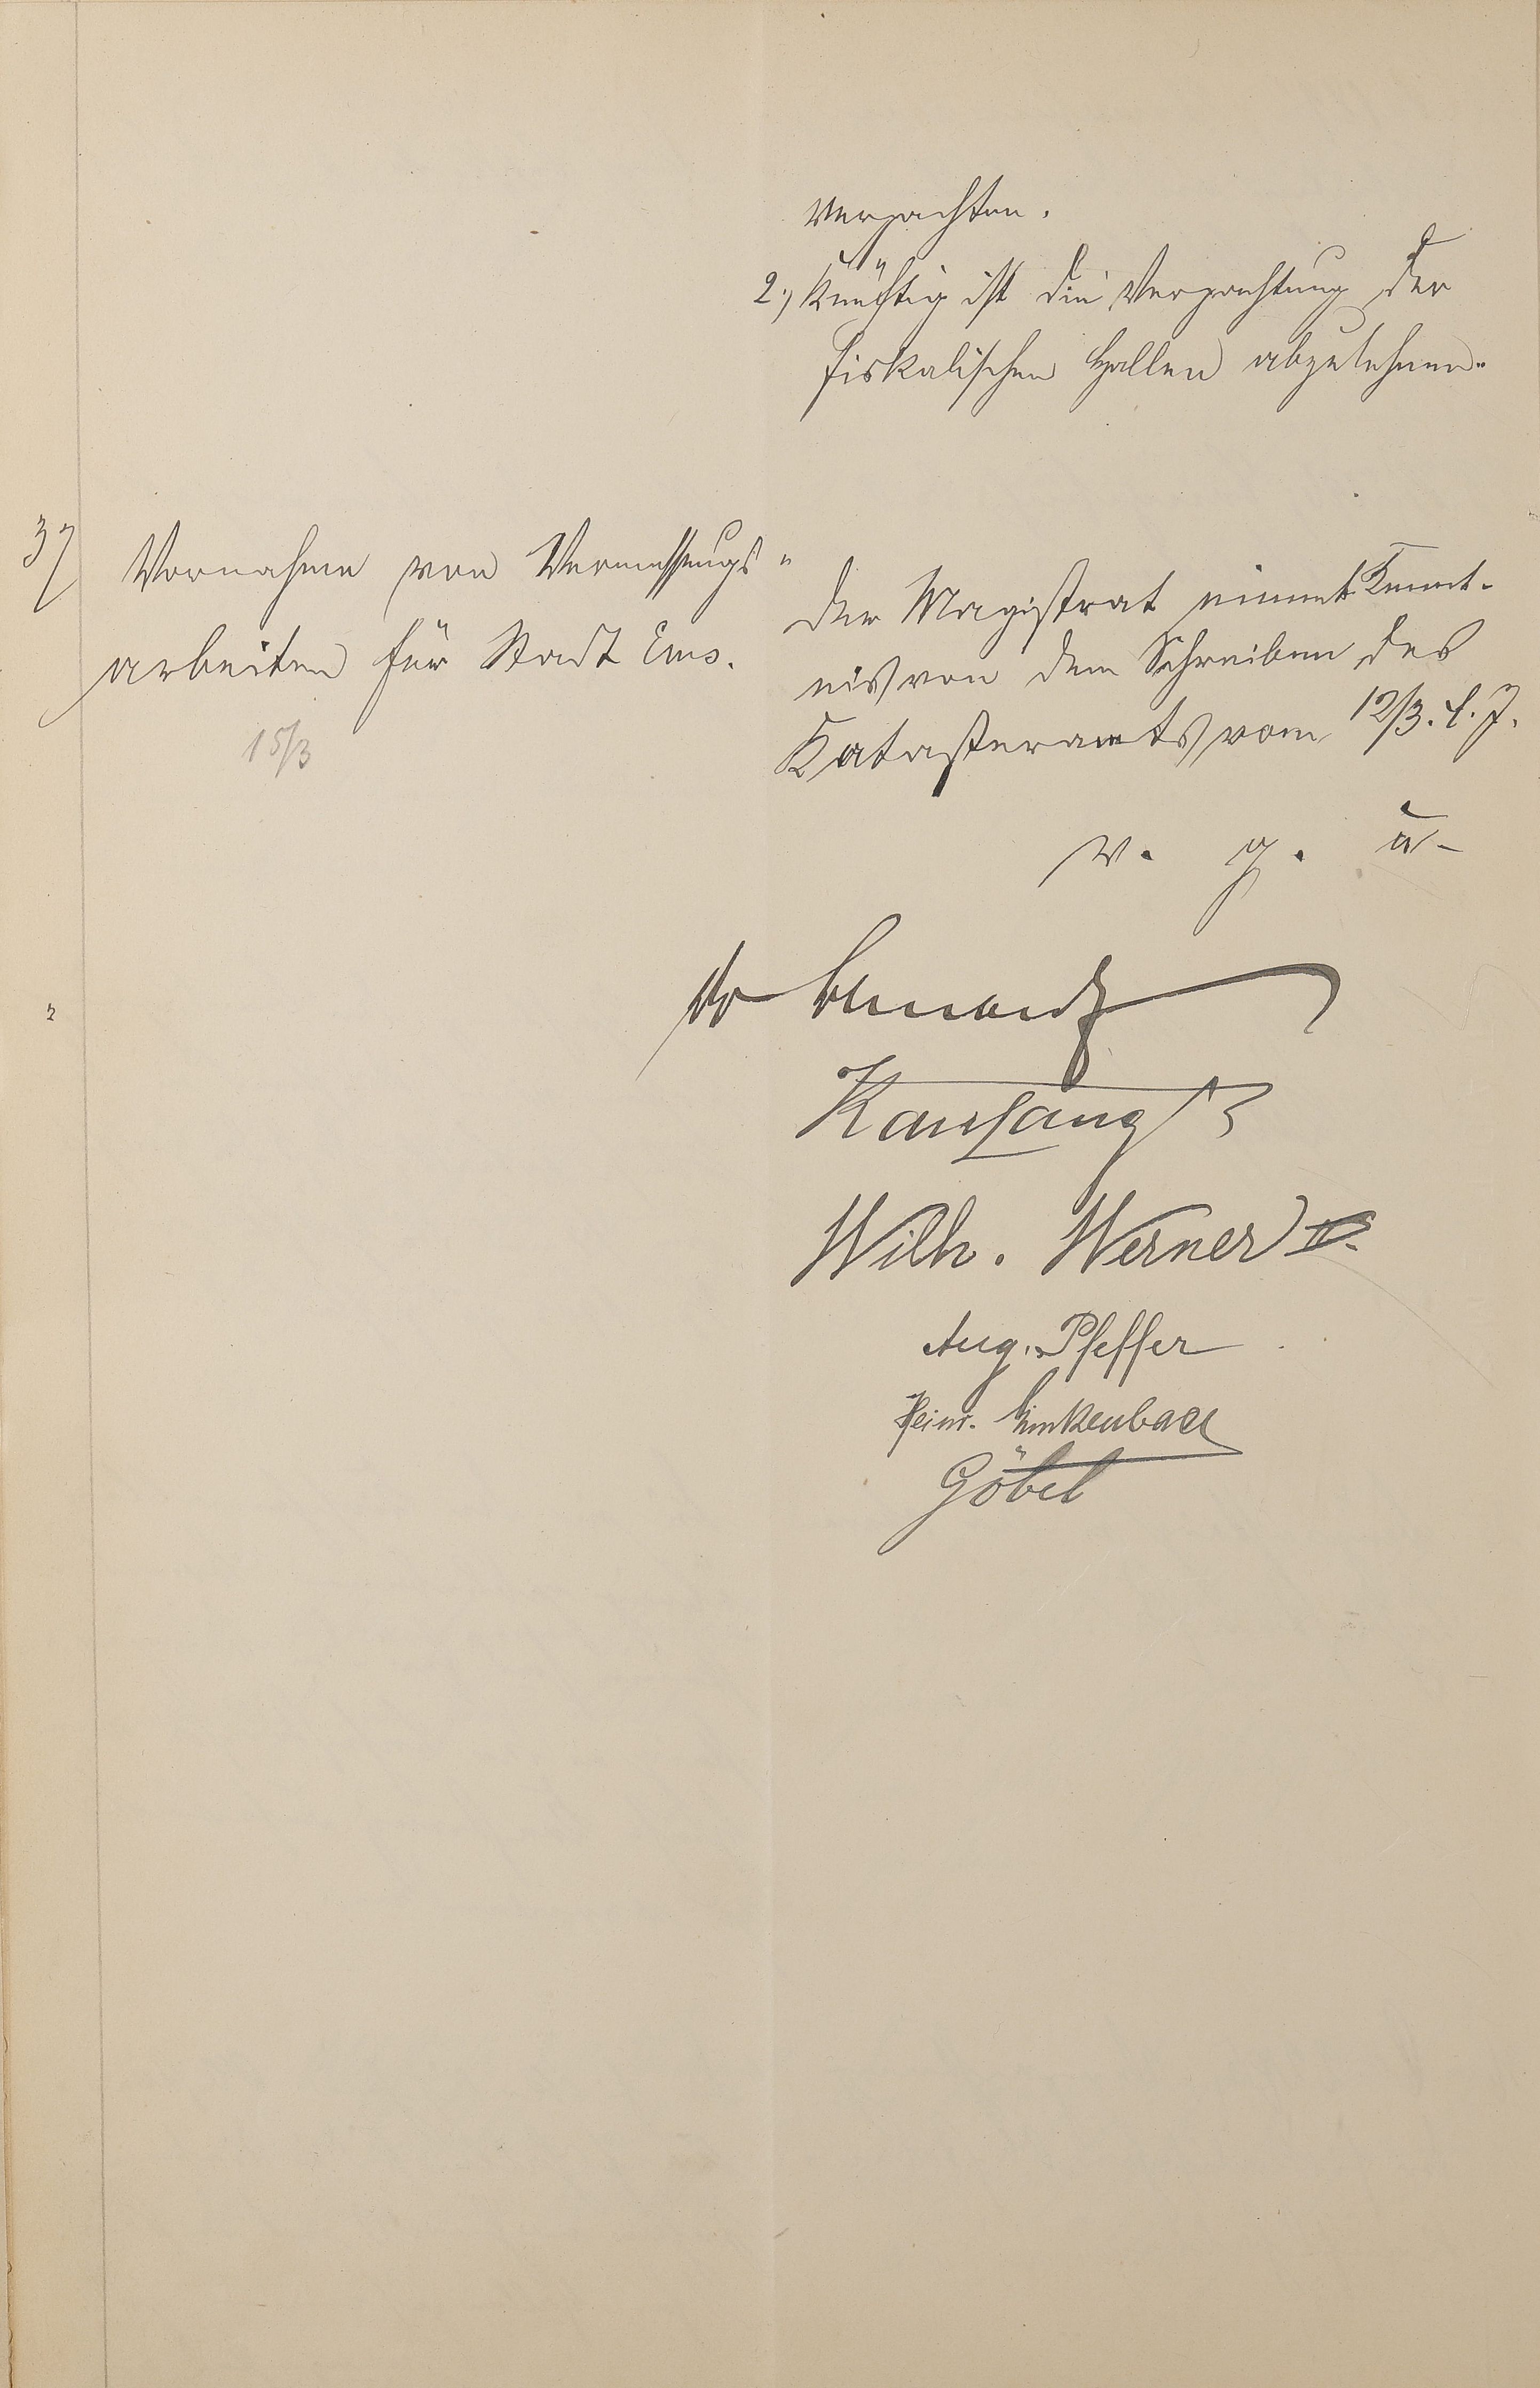 verpachten.
2.) Künftig ist die Verpachtung der
fiskalischen Hallen abzulehnen.
37
Vornahme von Vermessungs-
arbeiten für Stadt Ems.
15/3
Der Magistrat nimmt Kennt-
nis von dem Schreiben des
Katasteramts vom 12/3. l. J.
v. g. u.
Dr
Kauffang
Wilh. Werner
Aug. Pfeffer
Heinr. Linkenbach
Göbel